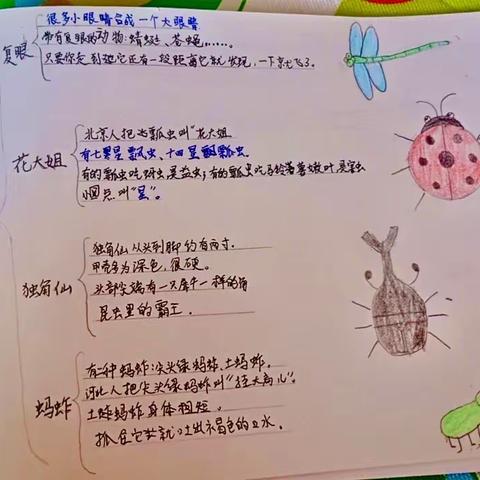 复眼
很多小眼睛合成一个大眼睛
带有复眼的动物:蜻蜓、苍蝇……。
只要你走到离它还有一段距离它就发现,一下就飞了。
花大姐
北京人把瓢虫叫"花大姐
有七星瓢虫、十四星瓢虫
有的瓢虫吃蚜虫是益虫;有的瓢虫吃马铃薯嫩叶是害虫
小圆点叫"星"。
独角仙
独角仙从头到脚约有两寸.
甲壳多为深色,很硬。
头部尖端有一只犀牛一样的角
昆虫里的霸王.
蚂蚱
有二种蚂蚱:尖头绿蚂蚱、土蚂蚱。
河北人把尖头绿蚂蚱叫"挂大扁儿"。
土蚂蚱身体粗短。
抓住它就吐出褐色的口水.